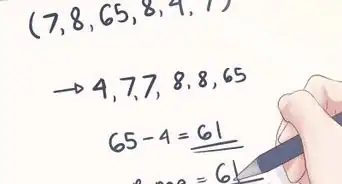 (7, 8, 65, 8, 4, 7)
→ 4, 7, 7, 8, 8, 65
65 - 4 = 61
= 61